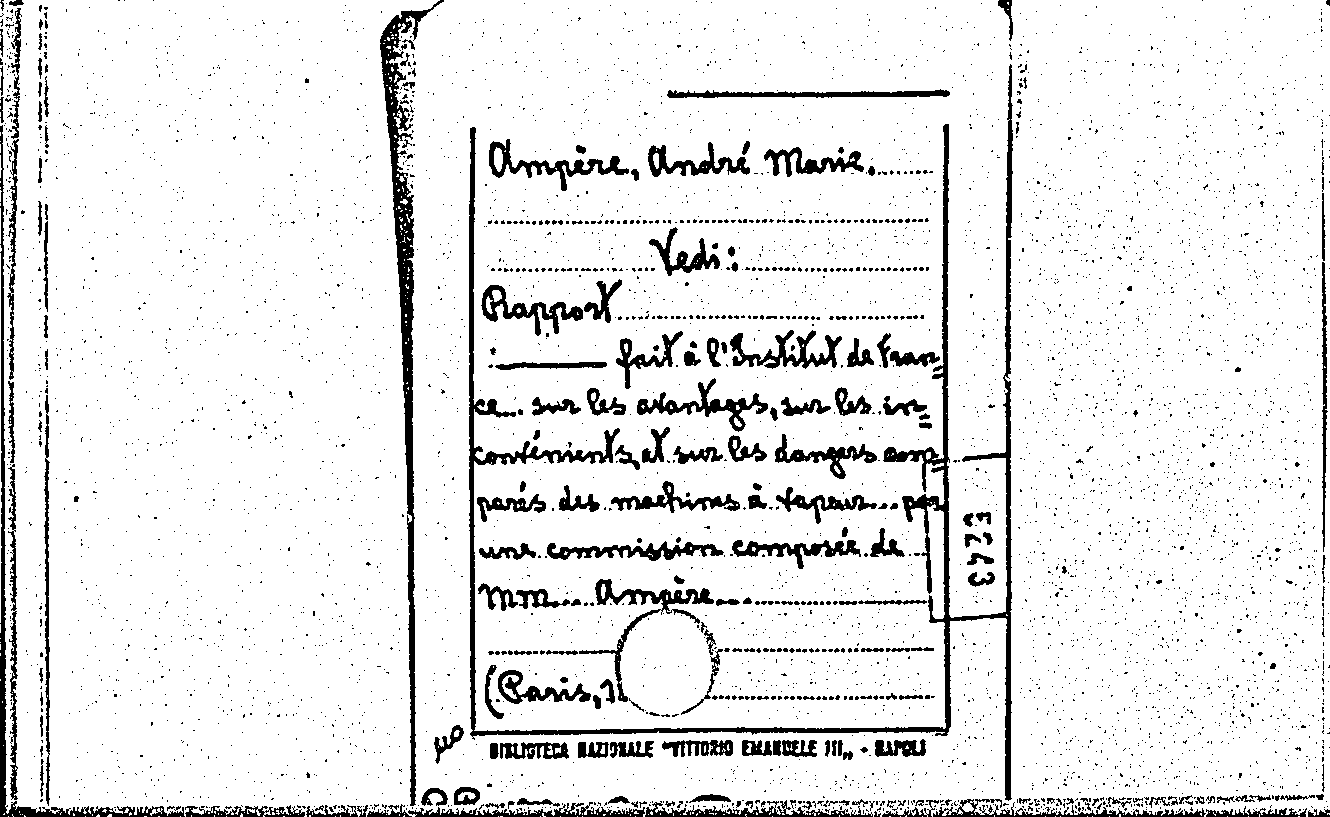 Ampère, André Marie.
Vedi:
Rapport
: ——— fait à l'Institut de Fran=
ce... sur les avantages, sur les in=
convénients, et sur les dangers com=
parés des machines à vapeur... par
une commission composée de
Mm... Ampère...
(Paris,
BIBLIOTECA NAZIONALE "VITTORIO EMANUELE III„ - NAPOLI